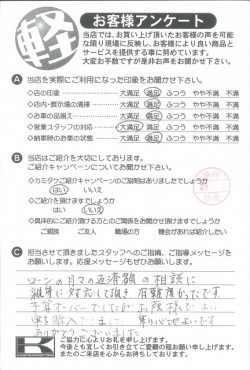 軽
お客様アンケート
当店では、お買い上げ頂いたお客様の声を可能
な限り現場に反映し、お客様により良い商品と
サービスを提供する事に努めています。
大変お手数ですが是非お声をお聞かせ下さい。
A 当店を実際にご利用になった印象をお聞かせ下さい。
◇店の印象 大満足 満足 ふつう やや不満 不満
◇店内・展示場の清掃 大満足 満足 ふつう やや不満 不満
◇お車の品揃え 大満足 満足 ふつう やや不満 不満
◇営業スタッフの対応 大満足 満足 ふつう やや不満 不満
◇納車時のお車の状態 大満足 満足 ふつう やや不満 不満
B 当店はご紹介を大切にしております。
ご紹介キャンペーンについてお聞かせ下さい。
◇カミタケご紹介キャンペーンのご説明はありましたでしょうか
はい いいえ
◇ご紹介を頂けますでしょうか
はい いいえ
◇具体的にご紹介頂ける方とのご関係をお聞かせ下さい
ご親族 ご友人 職場の方 機会があれば紹介したい
C 担当させて頂きましたスタッフへのご指摘、ご指導メッセージを
お願いします。応援メッセージもぜひお願いします。
ローンの月々の返済額の相談に
対応して頂き 有難かったです。
予算オーバーでしたが お陰様でよい
車を購入 乗り心地よいです
ありがとうございました
K
ご協力に心よりお礼を申し上げます。
今後とも宜しくお引き立てご愛顧の程お願い申し上げます。
またのご来店を心からお待ちしております。